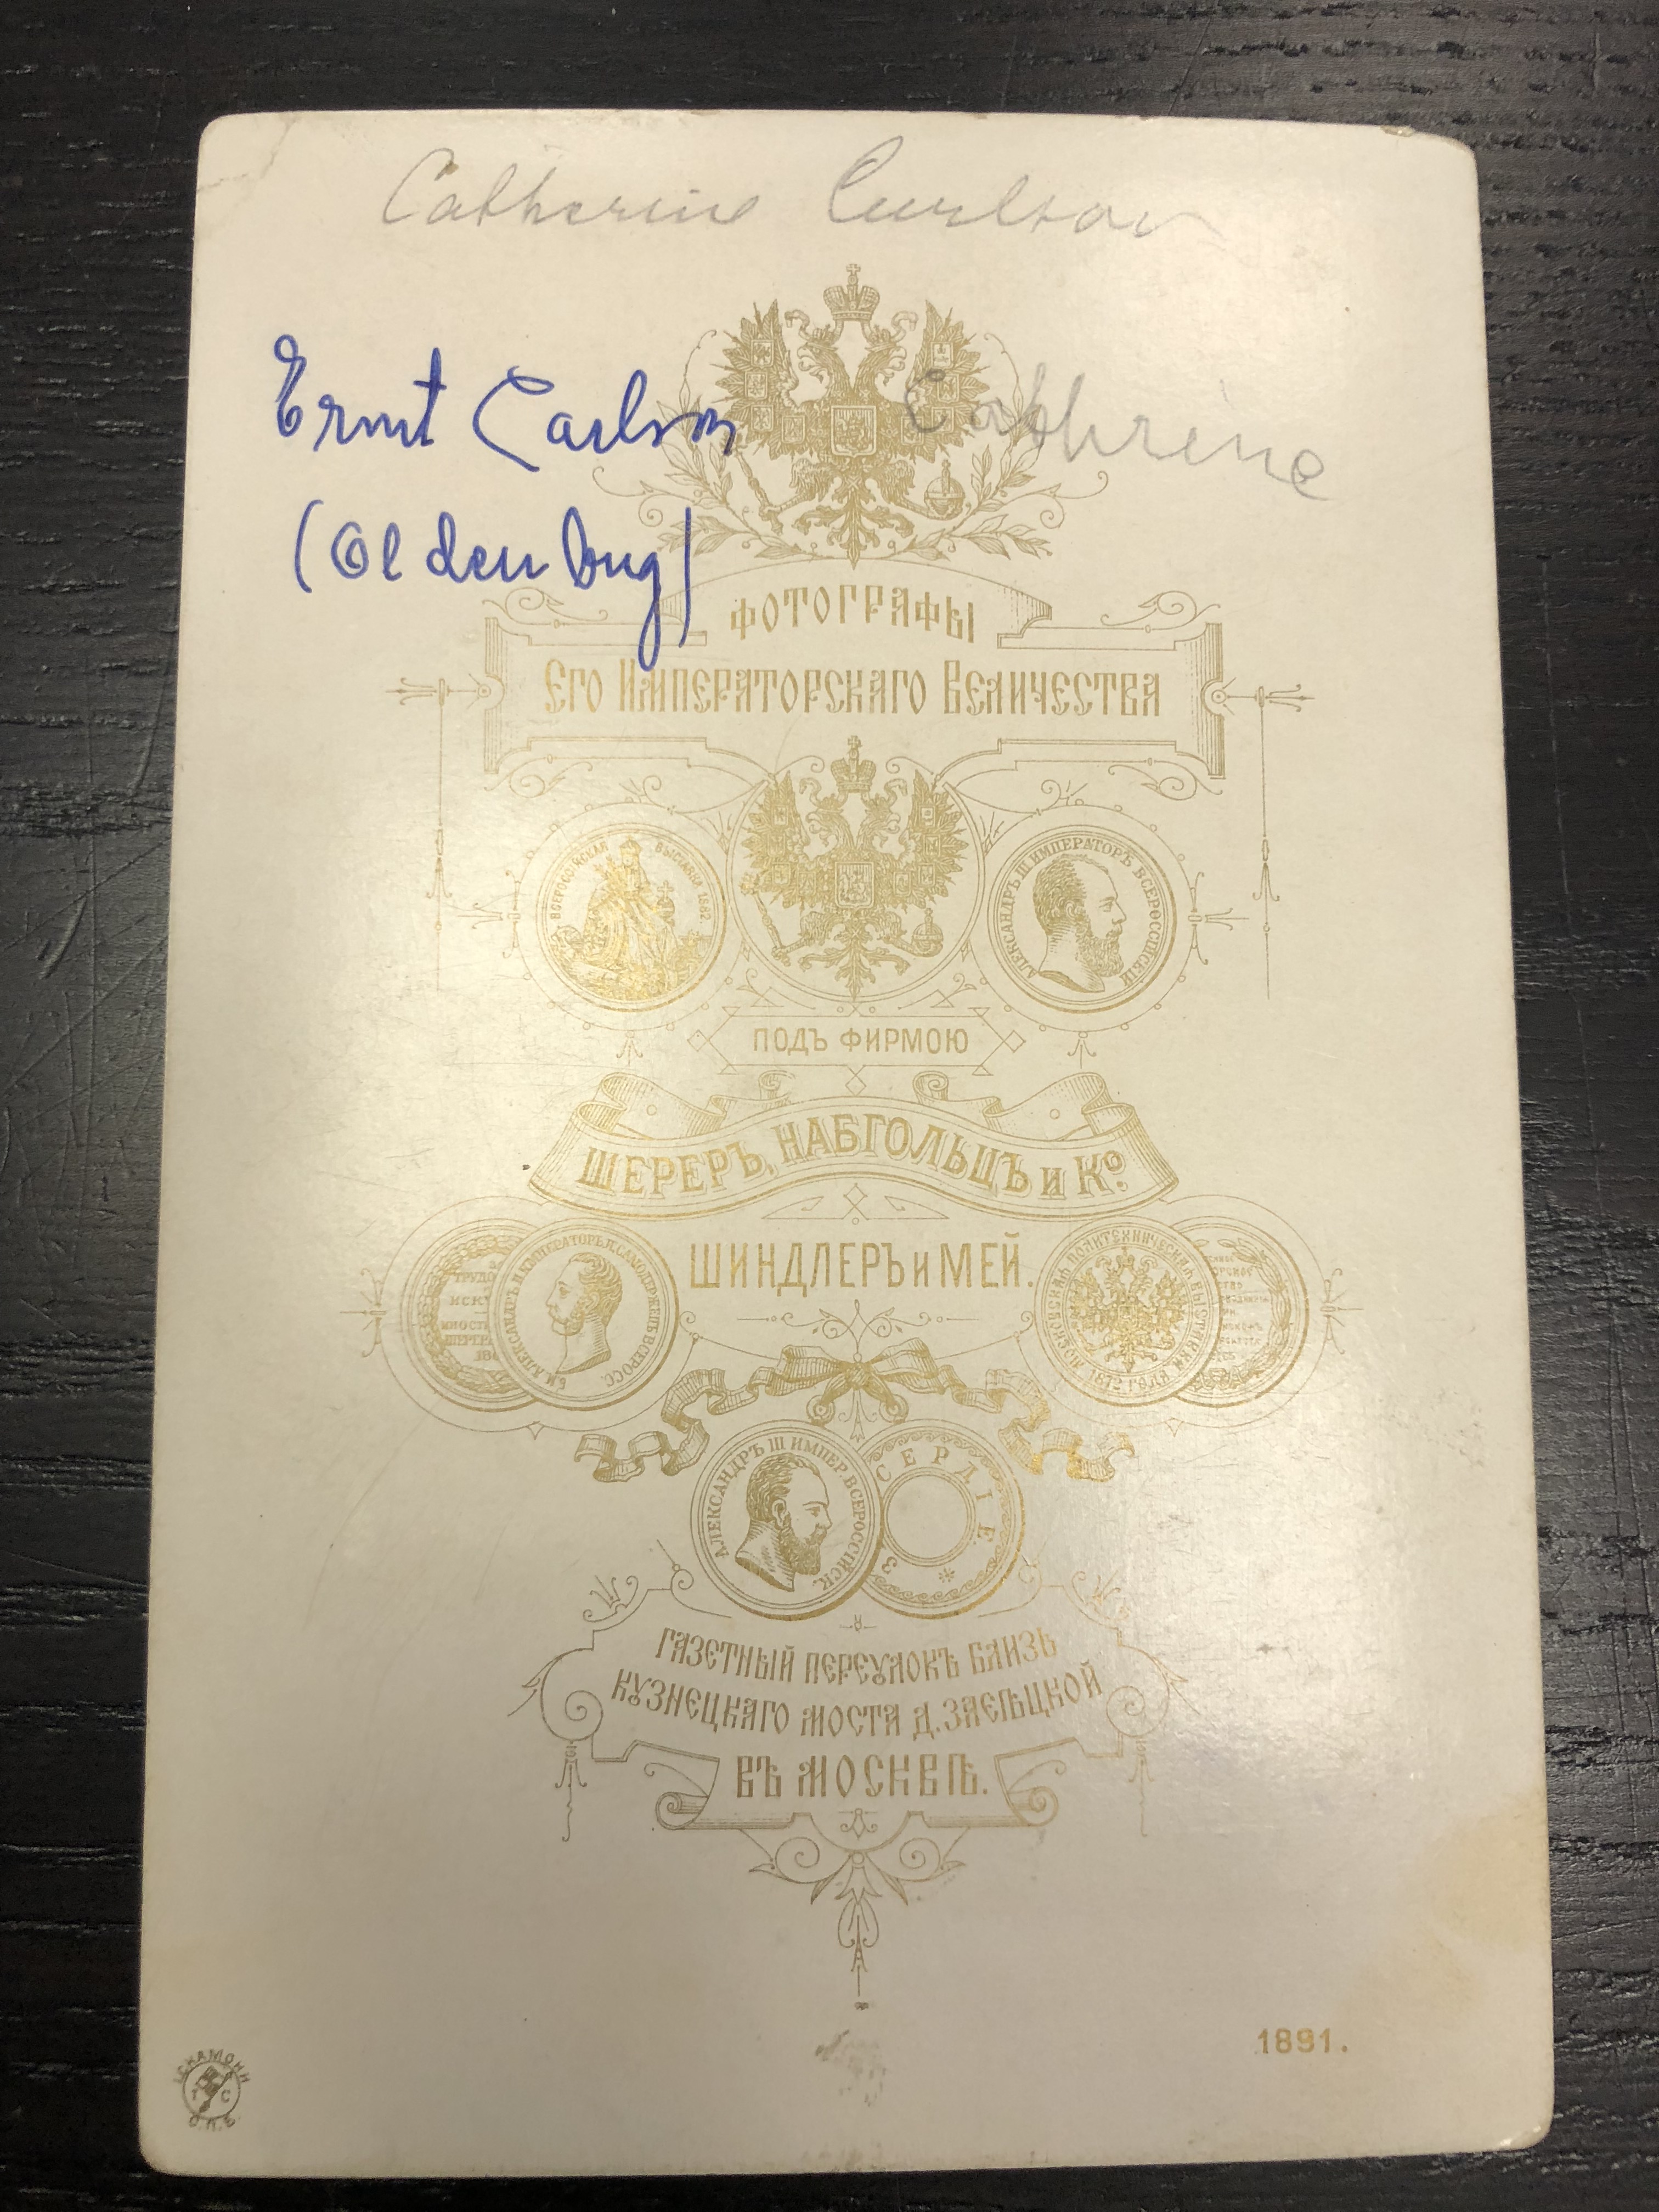 Catherine Curlson
Ernst Carlson
Cathrine
(Oldenbug)
ФОТОГРАФЫ
ЕГО ИМПЕРАТОРСКАГО ВЕЛИЧЕСТВА
ВСЕРОССІЙСКАЯ ВЫСТАВКА 1882.
АЛЕКСАНДРЪ III ИМПЕРАТОРЪ ВСЕРОССІЙСКІЙ
ПОДЪ ФИРМОЮ
ШЕРЕРЪ, НАБГОЛЬЦЪ и Кº.
ШИНДЛЕРЪ и МЕЙ.
Б. М. АЛЕКСАНДРЪ II ИМПЕРАТОРЪ И САМОДЕРЖЕЦЪ ВСЕРОСС.
МОСКОВСКАЯ ПОЛИТЕХНИЧЕСКАЯ ВЫСТАВКА 1872 ГОДА
АЛЕКСАНДРЪ III ИМПЕР. ВСЕРОССІЙСК.
СЕРДІЕ.
ГАЗЕТНЫЙ ПЕРЕУЛОКЪ БЛИЗЬ
КУЗНЕЦКАГО МОСТА Д. ЗАСѢЦКОЙ
ВЪ МОСКВѢ.
1891.
СКАМОНИ
С.П.Б